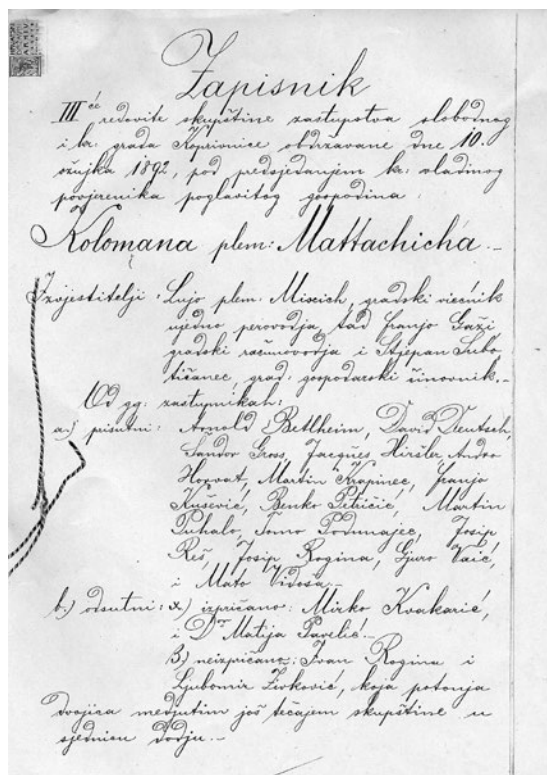 Zapisnik
III će redovite skupštine zastupstva slobodnog
i kr: grada Koprivnice obdržavane dne 10.
ožujka 1892, pod predsjedanjem kr: vladinog
povjerenika poglavitog gospodina
Kolomana plem: Mattachicha.-
Izvjestitelji: Lujo plem: Mixich, gradski viećnik
ujedno perovodja, tad Franjo Gaži
gradski računovodja i Stjepan Subo,
tičanec, grad: gospodarski činovnik.-
Od gg: zastupnikah:
a.) pisutni: Arnold Betlheim, David Deutsch,
Sandor Gross, Jacques Hiršler, Andro
Horvat, Martin Krapinec, Franjo
Kušević, Benko Petričić, Martin
Puhalo, Tomo Podmajec, Josip
Reš, Josip Rogina, Gjuro Vaić,
i Mato Vidoša.-
b.) odsutni: α) izpričano: Mirko Kvakarić,
i Dr Matija Pavelić.-
β) neizpričano: Ivan Rogina i
Ljubomir Živković, koja potonja
dvojica medjutim još tečajem skupštine u
sjednicu dodju.-